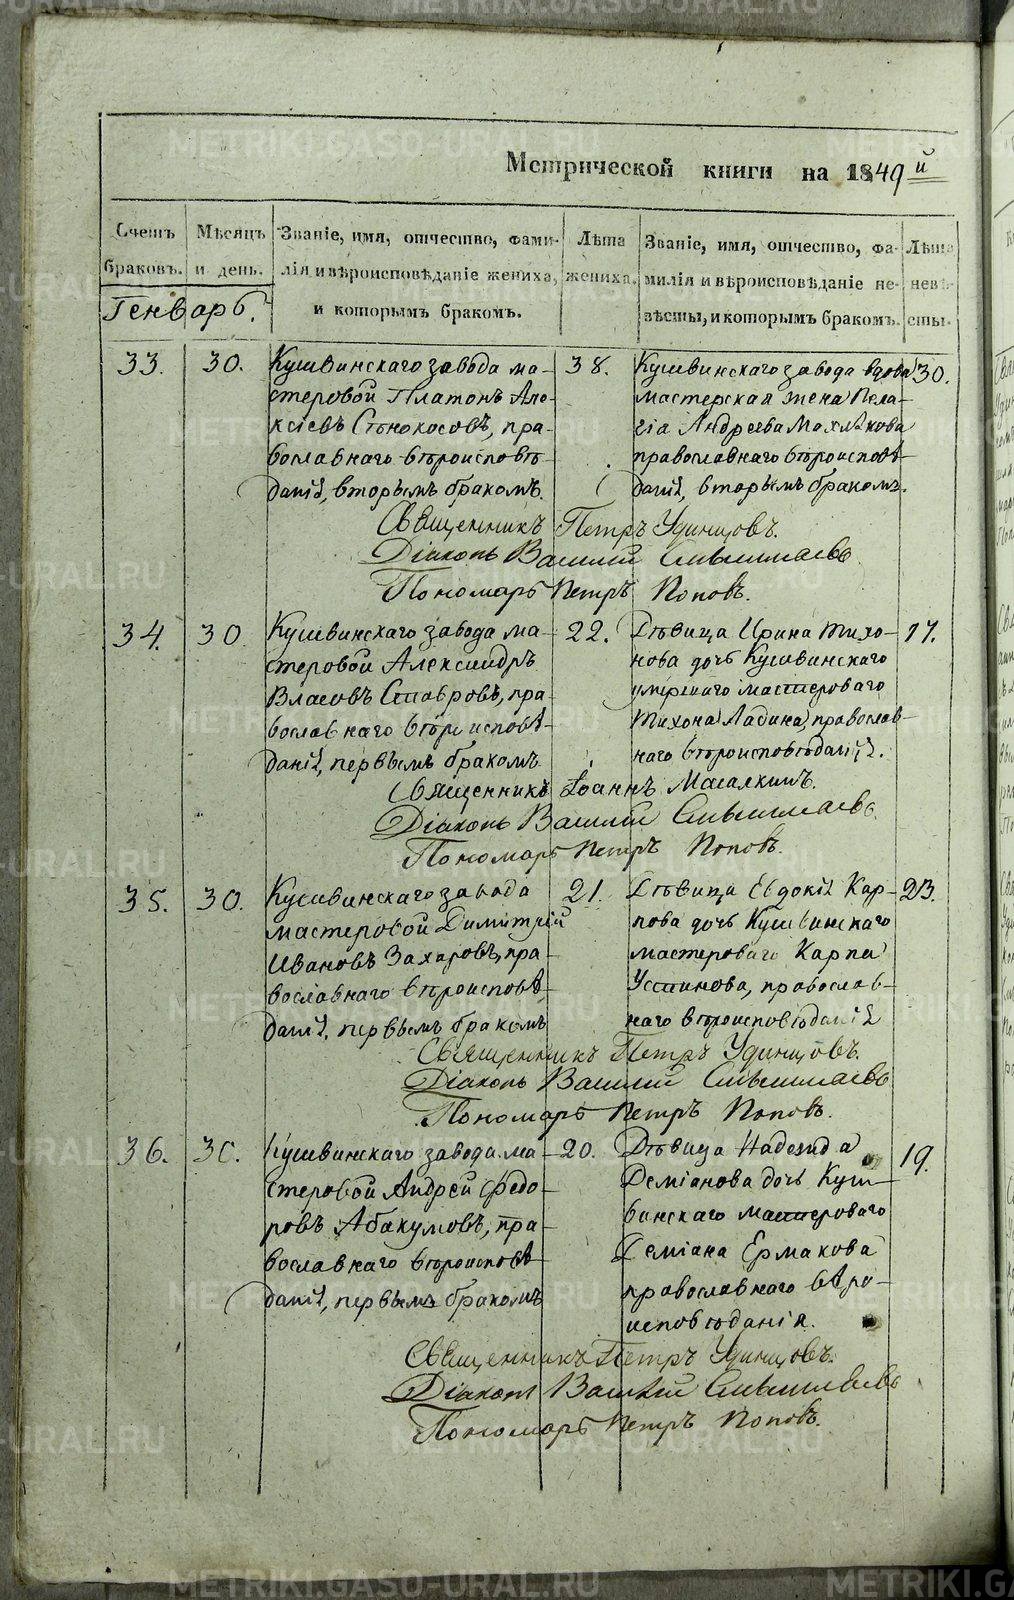 METRIKI.GASO-URAL.RU
Метрической книги на 1849й
Счетъ браковъ.
Мѣсяцъ и день.
Званіе, имя, отчество, фами-
лія и вѣроисповѣданіе жениха,
и которымъ бракомъ.
Лѣта жениха.
Званіе, имя, отчество, фа-
милія и вѣроисповѣданіе не-
вѣсты, и которымъ бракомъ.
Лѣта невѣ-
сты.
Генварь.
33.
30.
Кушвинскаго завода ма-
стеровой Платонъ Але-
ксіевъ Сѣнокосовъ, пра-
вославнаго вѣроисповѣ-
данія, вторымъ бракомъ.
38.
Кушвинскаго завода вдова
мастерская жена Пела-
гіа Андреева Махлѣкова
православнаго вѣроисповѣ-
данія, вторымъ бракомъ.
30.
Священникъ Петръ Удинцовъ.
Діаконъ Василій
Пономарь Петръ Поповъ.
34.
30
Кушвинскаго завода ма-
стеровой Александръ
Власовъ Ставровъ, пра-
вославнаго вѣроисповѣ-
данія, первымъ бракомъ
22.
Дѣвица Ирина Тихо-
нова дочь Кушвинскаго
умершаго мастероваго
Тихона Ладина, православ-
наго вѣроисповѣданія.
17.
Священникъ Іоаннъ
Діаконъ Василій
Пономарь Петръ Поповъ.
35.
30.
Кушвинскаго завода
мастеровой Димитрій
Ивановъ Захаровъ, пра-
вославнаго вѣроисповѣ-
данія, первымъ бракомъ
21.
Дѣвица Евдокія Кар-
пова дочь Кушвинскаго
мастероваго Карпа
Устинова, православ-
наго вѣроисповѣданія
23.
Священникъ Петръ Удинцовъ.
Діаконъ Василій
Пономарь Петръ Поповъ.
36.
30.
Кушвинскаго завода ма-
стеровой Андрей Федо-
ровъ Абакумовъ, пра-
вославнаго вѣроисповѣ-
данія, первымъ бракомъ
20.
Дѣвица Надежда
Деміанова дочь Куш-
винскаго мастероваго
Деміана Ермакова
православнаго вѣро-
исповѣданія.
19.
Священникъ Петръ Удинцовъ.
Діаконъ Василій
Пономарь Петръ Поповъ.